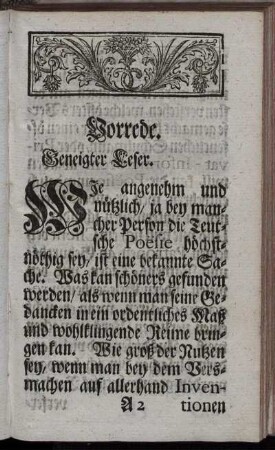 Vorrede.
Geneigter Leser.
WJe angenehm und
nützlich/ ja bey man-
cher Person die Teut-
sche Poesie höchst-
nöthig sey/ ist eine bekannte Sa-
che. Was kan schöners gefunden
werden/ als wenn man seine Ge-
dancken in ein ordentliches Maß
und wohlklingende Reime brin-
gen kan. Wie groß der Nutzen
sey/ wenn man bey dem Vers-
machen auf allerhand Inven-
A 2 tionen